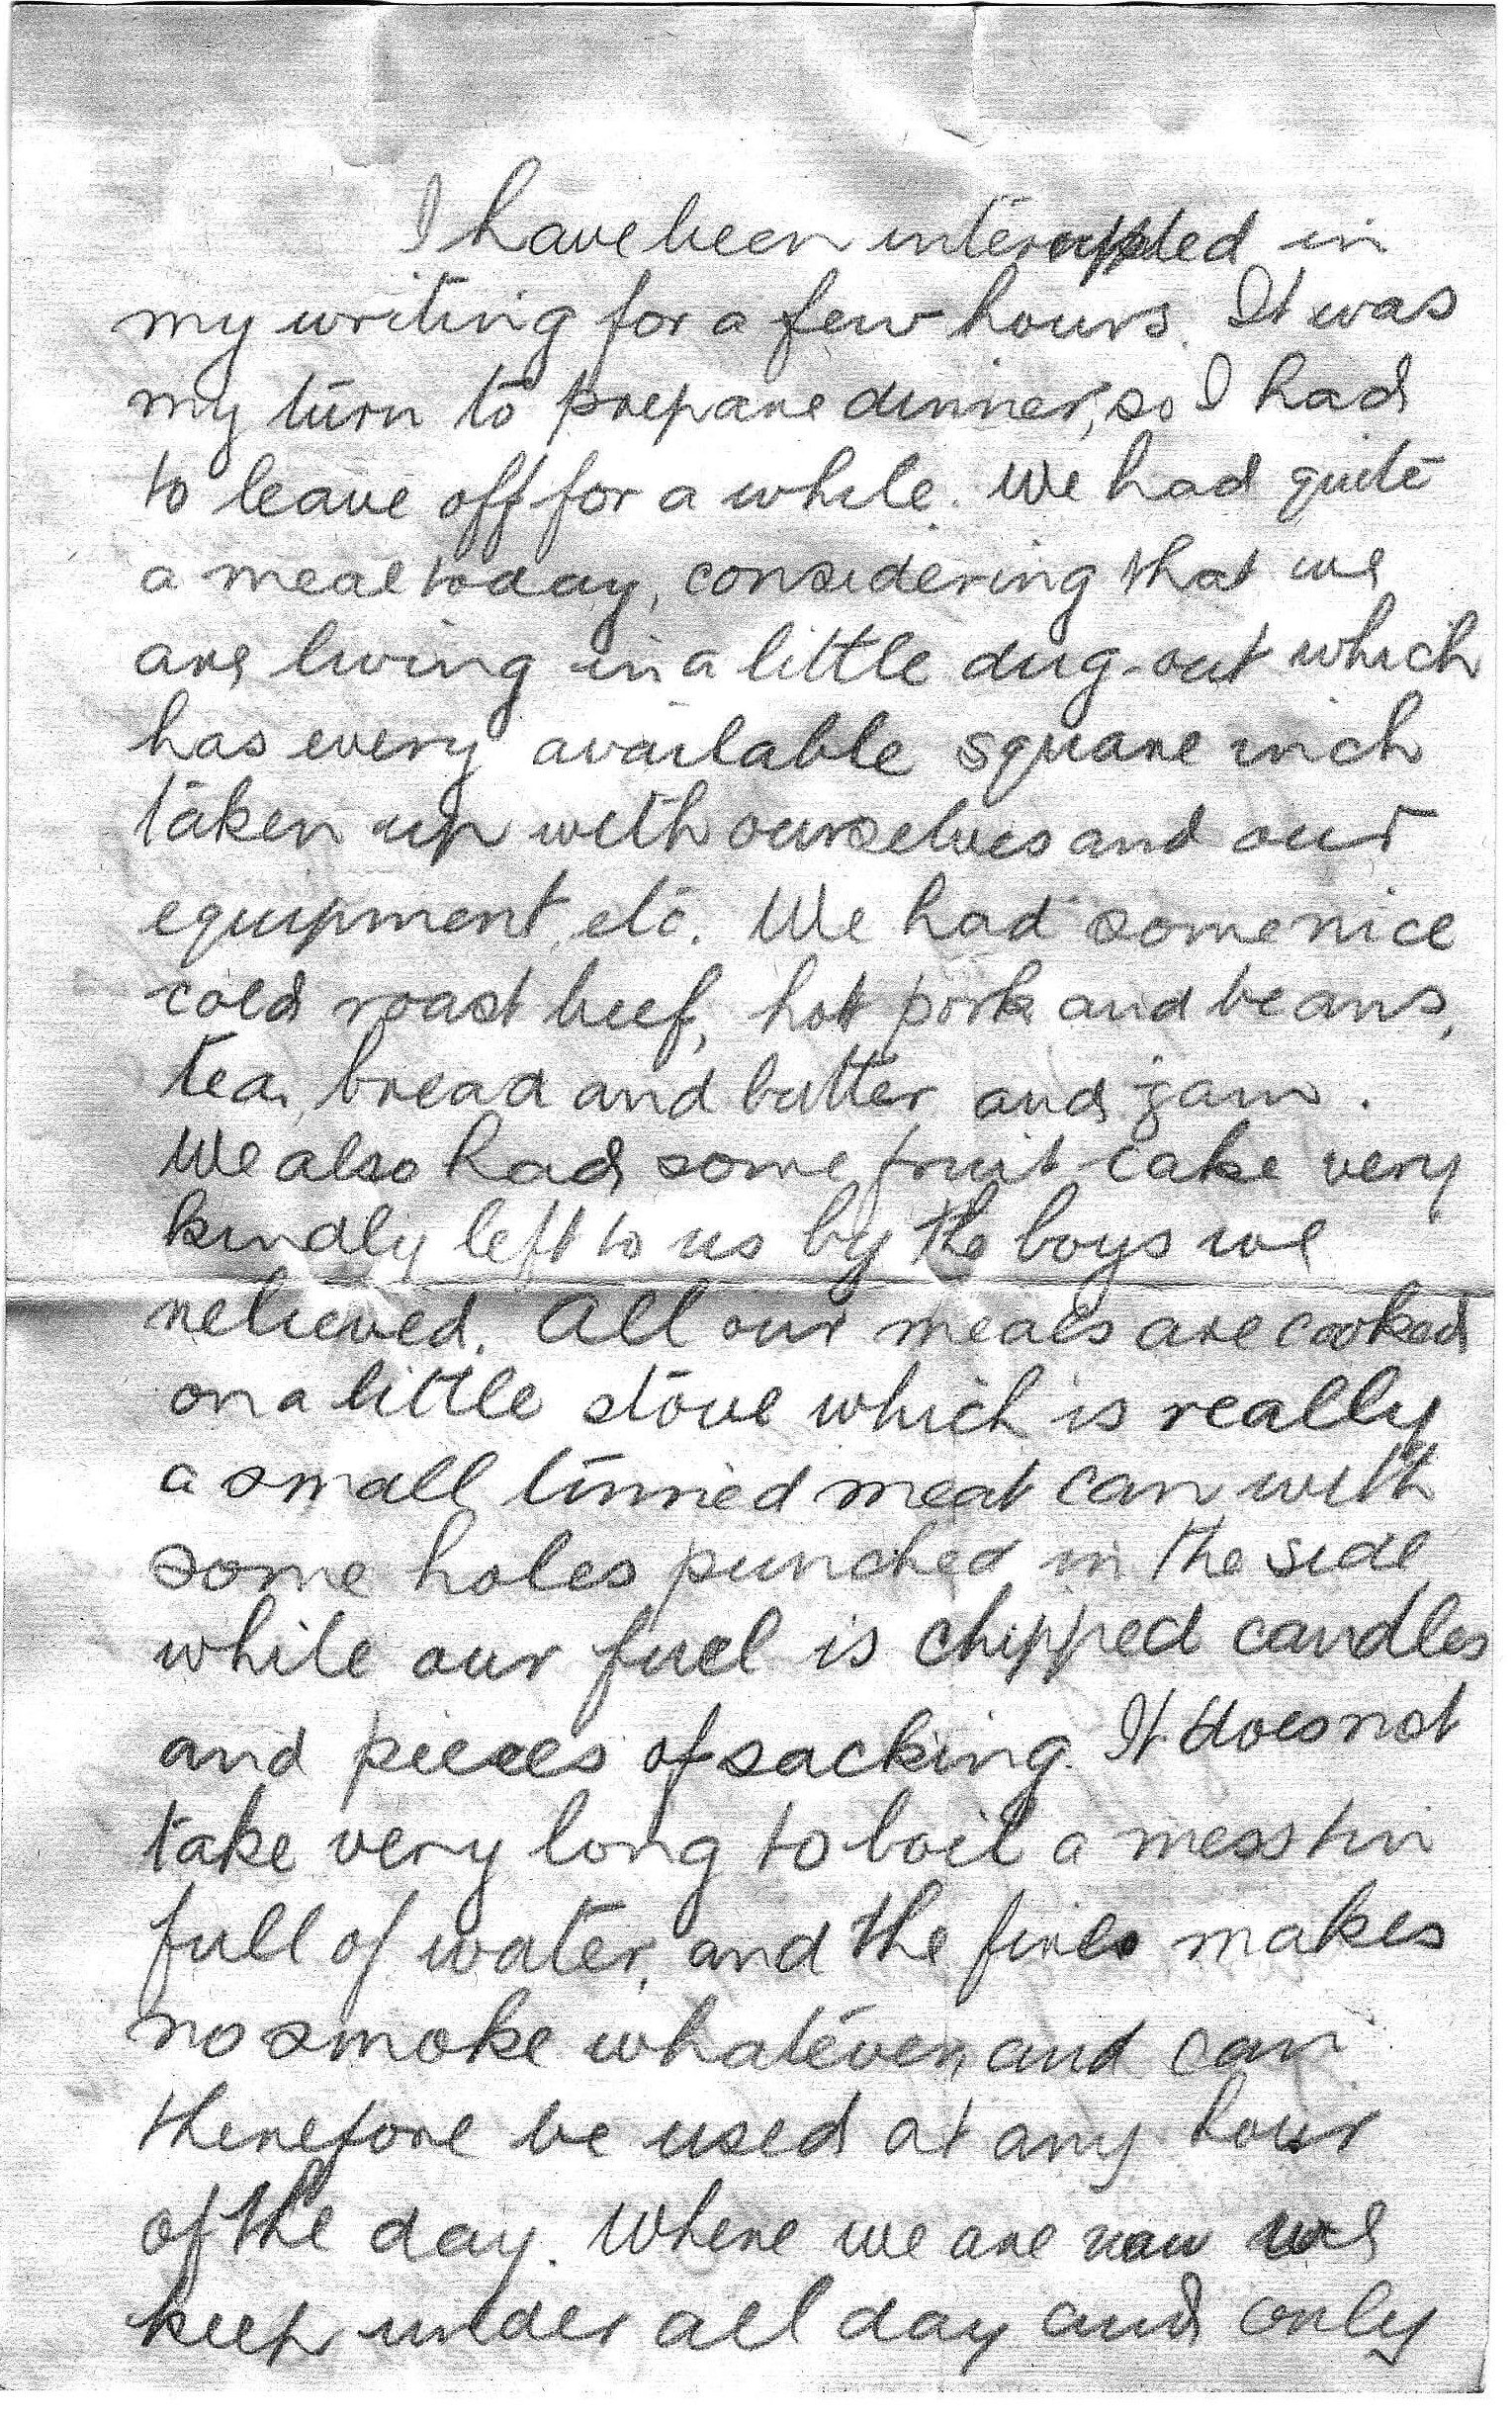 I have been interuppted in
my writing for a few hours. It was
my turn to prepare dinner, so I had
to leave off for a while. We had quite
a meal today, considering that we
are living in a little dug-out which
has every available square inch
taken up with ourselves and our
equipment, etc. We had some nice
cold roast beef, hot pork and beans,
tea, bread and butter and jam.
We also had some fruit cake very
kindly left to us by the boys we
relieved. All our meals are cooked
on a little stove which is really
a small tinned meat can with
some holes punched in the side
while our fuel is chipped candles
and pieces of sacking. It does not
take very long to boil a mess tin
full of water, and the fire makes
no smoke whatever, and can
therefore be used at any hour
of the day. Where we are now we
keep under all day and only